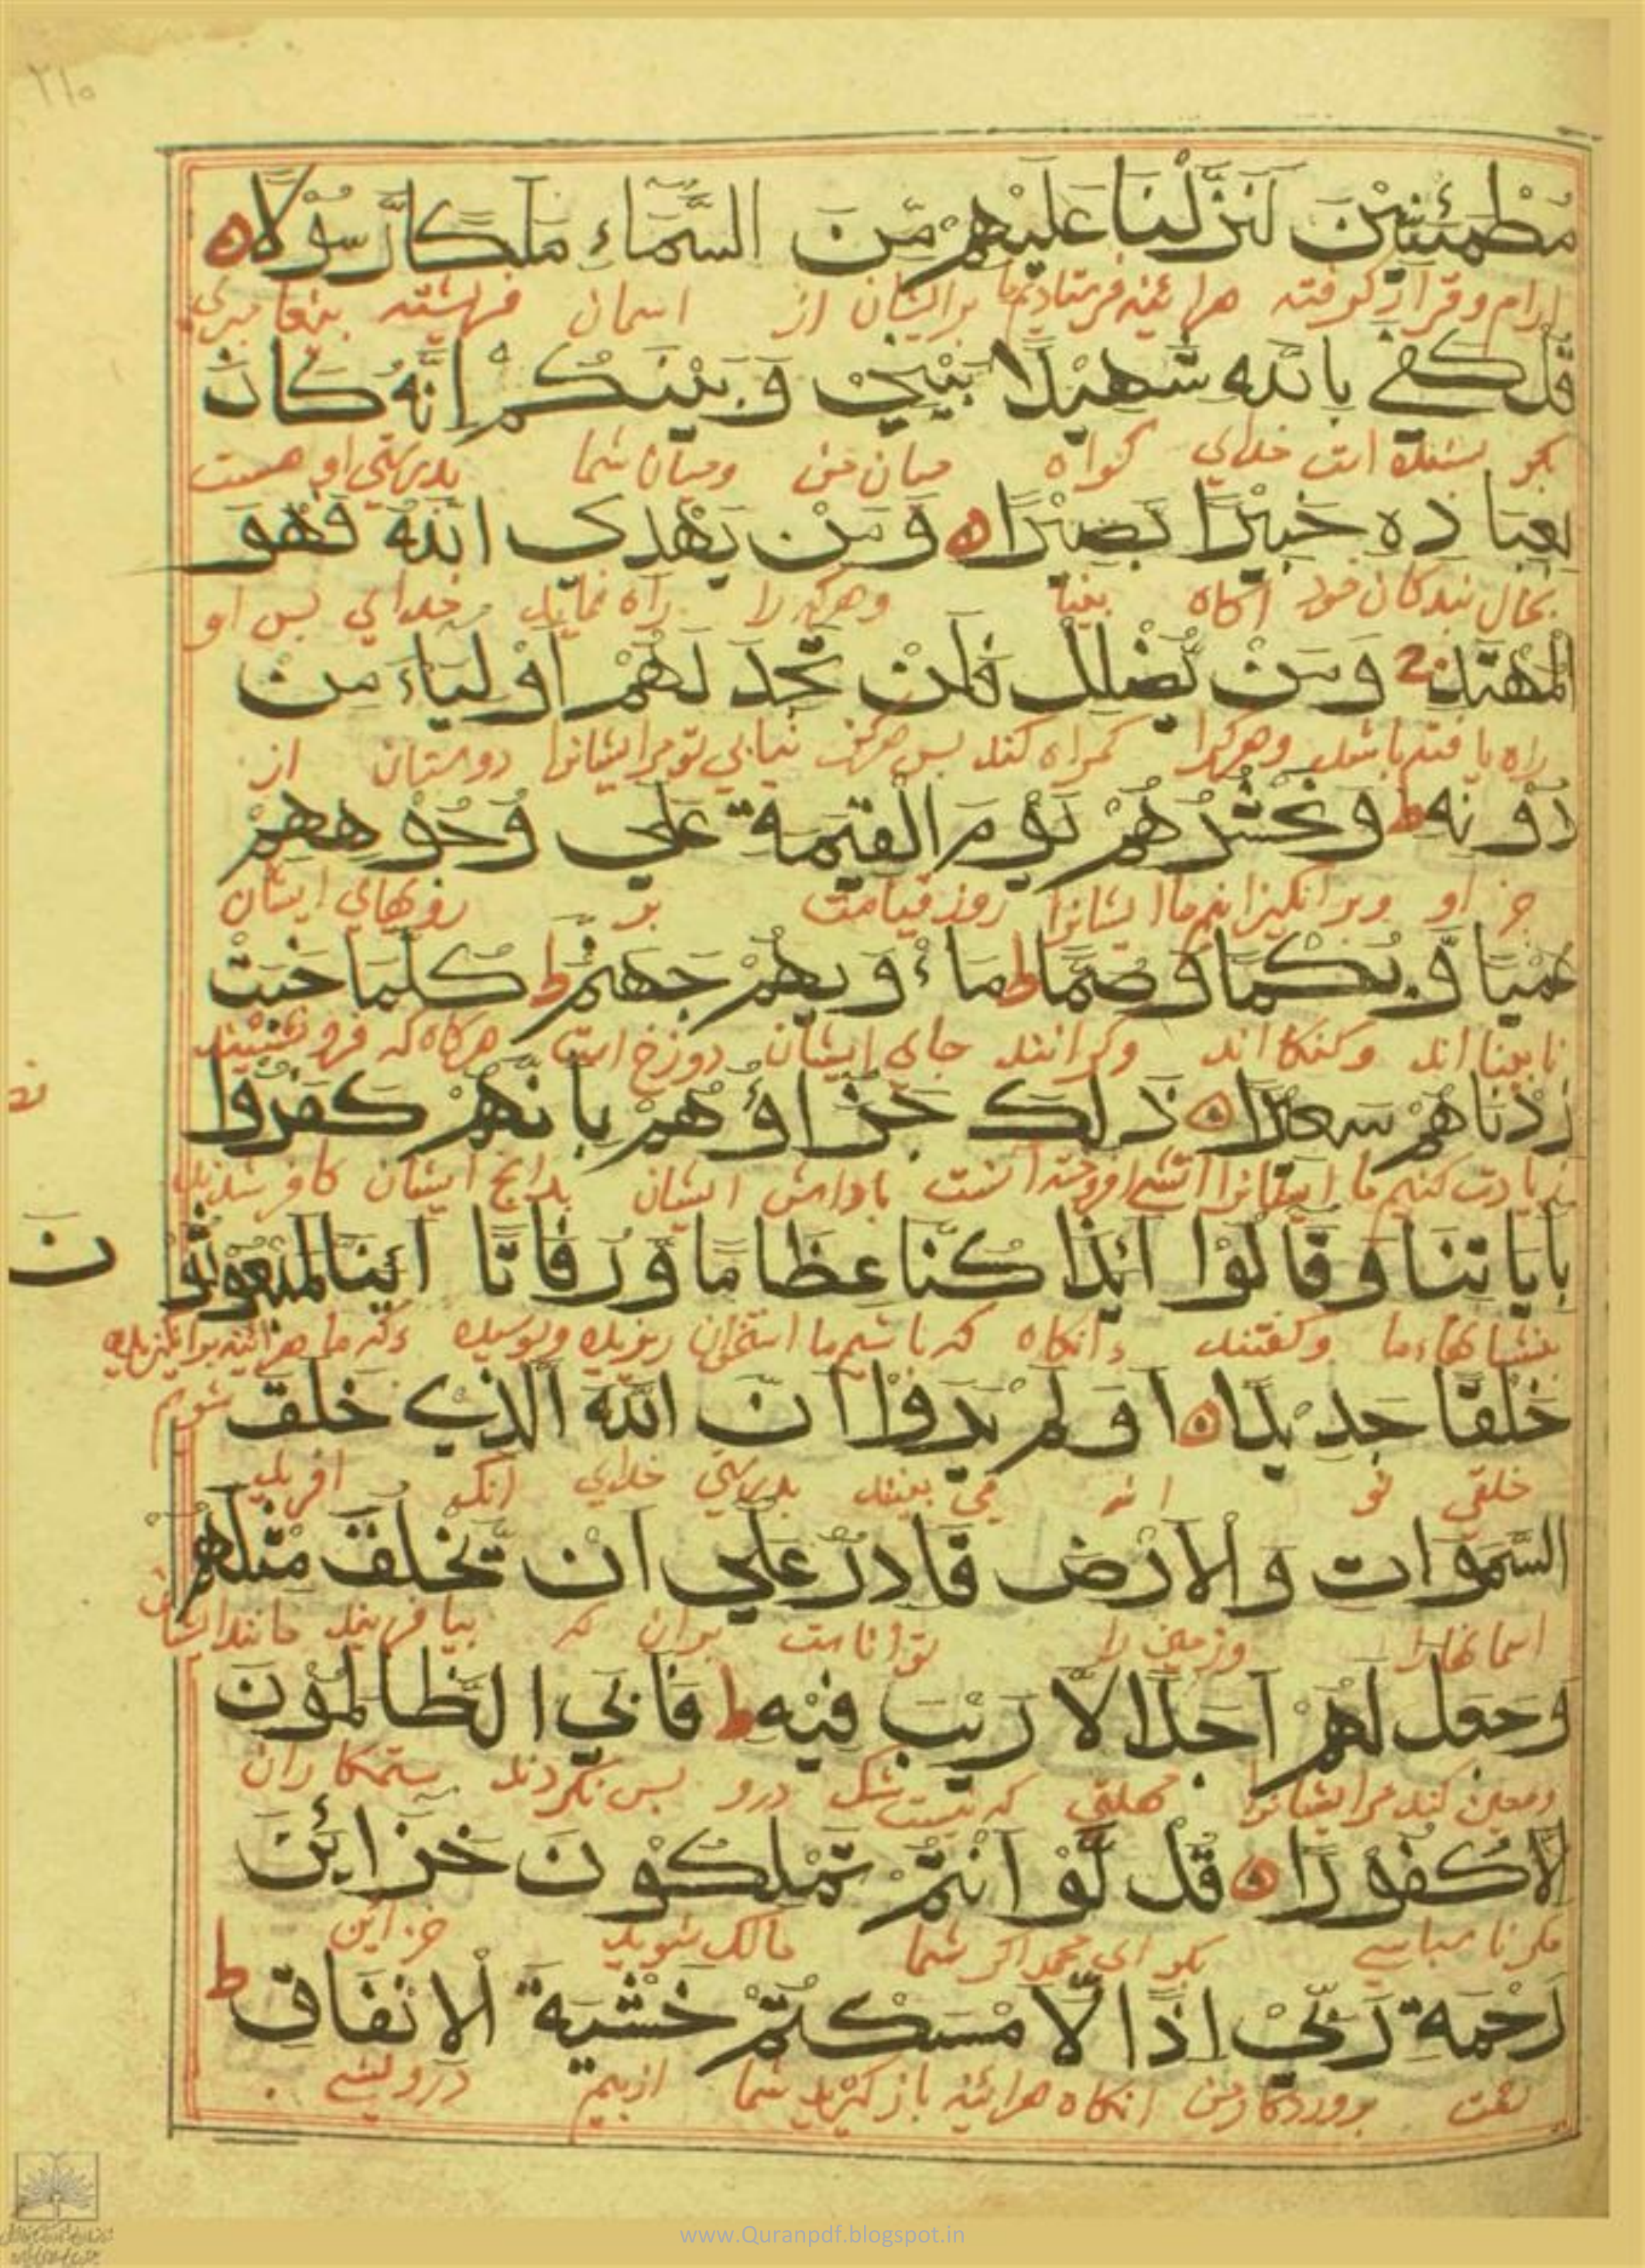 ۲۱۰
مُطْمَئِنِّيْنَ لَنَزَّلْنَا عَلَيْهِمْ مِّنَ السَّمَاءِ مَلَكًا رَّسُوْلًا
ارام وقرار گرفته هرائينه فرستاديم ما برايشان از اسمان فرشته بيغامبري
قُلْ كَفٰي بِاللّٰهِ شَهِيْدًا بَيْنِيْ وَبَيْنَكُمْ اِنَّهُ كَانَ
بكو بسنده است خداي كواه ميان من وميان شما بدرستي او هست
بِعِبَادِهِ خَبِيْرًا بَصِيْرًا وَمَنْ يَهْدِي اللّٰهُ فَهُوَ
بحال بندكان خود اكاه بينا وهركه را راه نمايد خداي بس او
الْمُهْتَدِ وَمَنْ يُضْلِلْ فَلَنْ تَجِدَ لَهُمْ اَوْلِيَاءَ مِنْ
راه يافته باشد وهركرا كمراه كند بس هركز نيابي تو مرايشانرا دوستان از
دُوْنِهِ ط وَنَحْشُرُهُمْ يَوْمَ الْقِيٰمَةِ عَلٰي وُجُوْهِهِمْ
جز او وبرانكيزانيم ما ايشانرا روز قيامت بر رويهاي ايشان
عُمْيًا وَّبُكْمًا وَّصُمًّا ط مَاْوٰيهُمْ جَهَنَّمُ ط كُلَّمَا خَبَتْ
نابينا اند وكنكا اند وكرانند جاي ايشان دوزخ است هركاه كه فرو نشيند
زِدْنَاهُمْ سَعِيْرًا ذٰلِكَ جَزَاؤُهُمْ بِاَنَّهُمْ كَفَرُوْا
زيادت كنيم ما ايشانرا اتشي افروخته انست باداش ايشان بدانچ ايشان كافر شدند
بِاٰيَاتِنَا وَقَالُوْا اَئِذَا كُنَّا عِظَامًا وَّرُفَاتًا اَئِنَّا لَمَبْعُوْثُوْنَ
بنشانهاء ما وكفتند انكاه كه باشيم ما استخوان ريزيده وبوسيده كه ما هرائينه برانكيزيده شويم
خَلْقًا جَدِيْدًا اَوَلَمْ يَرَوْا اَنَّ اللّٰهَ الَّذِيْ خَلَقَ
خلقي نو انه مي بينند بدرستي خداي انكه افريد
السَّمٰوَاتِ وَالْاَرْضَ قَادِرٌ عَلٰي اَنْ يَّخْلُقَ مِثْلَهُمْ
اسمانهارا وزمين را تواناست بران كه بيافريند مانند ايشان
وَجَعَلَ لَهُمْ اَجَلًا لَّا رَيْبَ فِيْهِ ط فَاَبَي الظَّالِمُوْنَ
ومعين كند مرايشانرا مهلتي كه نيست شك درو بس نكردند ستمكاران
اِلَّا كُفُوْرًا قُلْ لَّوْ اَنْتُمْ تَمْلِكُوْنَ خَزَائِنَ
مكر ناسباسي بكو اي محمد اكر شما مالك شويد خزاين
رَحْمَةِ رَبِّيْ اِذًا لَّاَمْسَكْتُمْ خَشْيَةَ الْاِنْفَاقِ ط
نعمت بروردكار من انكاه هرائينه باز كيريد شما از بيم درويشي
www.Quranpdf.blogspot.in